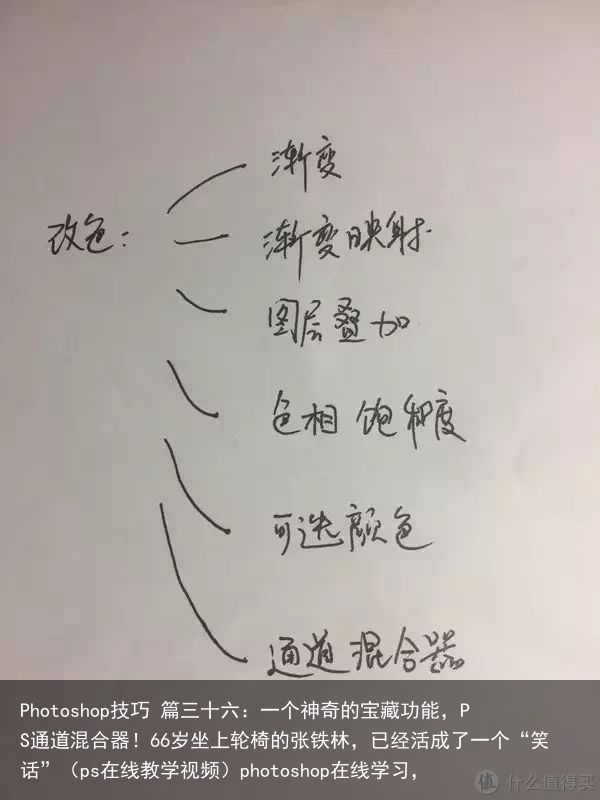 改色：
渐变
渐变映射
图层叠加
色相 饱和度
可选颜色
通道混合器
Photoshop技巧 篇三十六：一个神奇的宝藏功能，P
S通道混合器！66岁坐上轮椅的张铁林，已经活成了一个“笑
话”（ps在线教学视频）photoshop在线学习，
值 什么值得买